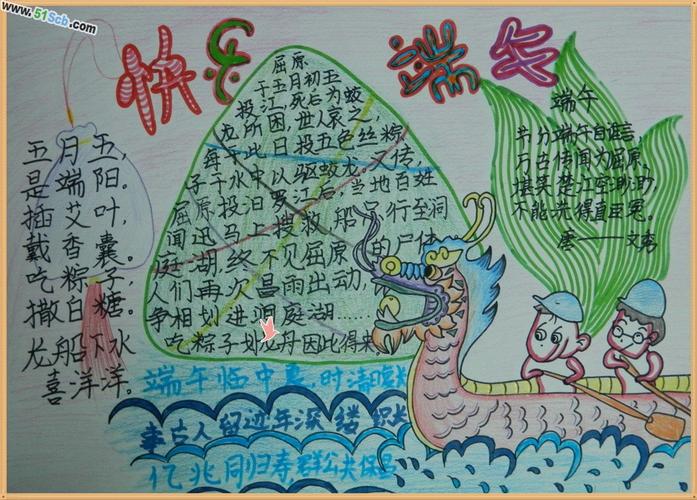 www.51Scb.com
快乐
端午
五月五,
是端阳。
插艾叶,
戴香囊。
吃粽子,
撒白糖。
龙船下水
喜洋洋。
屈原
于五月初五
投江,死后为蛟
龙所困,世人哀之
每于此日投五色丝粽
子于水中以驱蛟龙,又传,
屈原投汨罗江后,当地百姓
闻迅马上搜救,船只,行至洞
庭湖,终不见屈原的尸体
人们再次冒雨出动,
争相划进洞庭湖……
吃粽子划龙舟因此得来
端午
节分端午自谁言,
万古传闻为屈原。
堪笑楚江空渺渺,
不能洗得直臣冤。
唐——文秀
端午临中夏,时清日复长
事古人留迹年深缕积长
亿兆同归寿群公共保昌